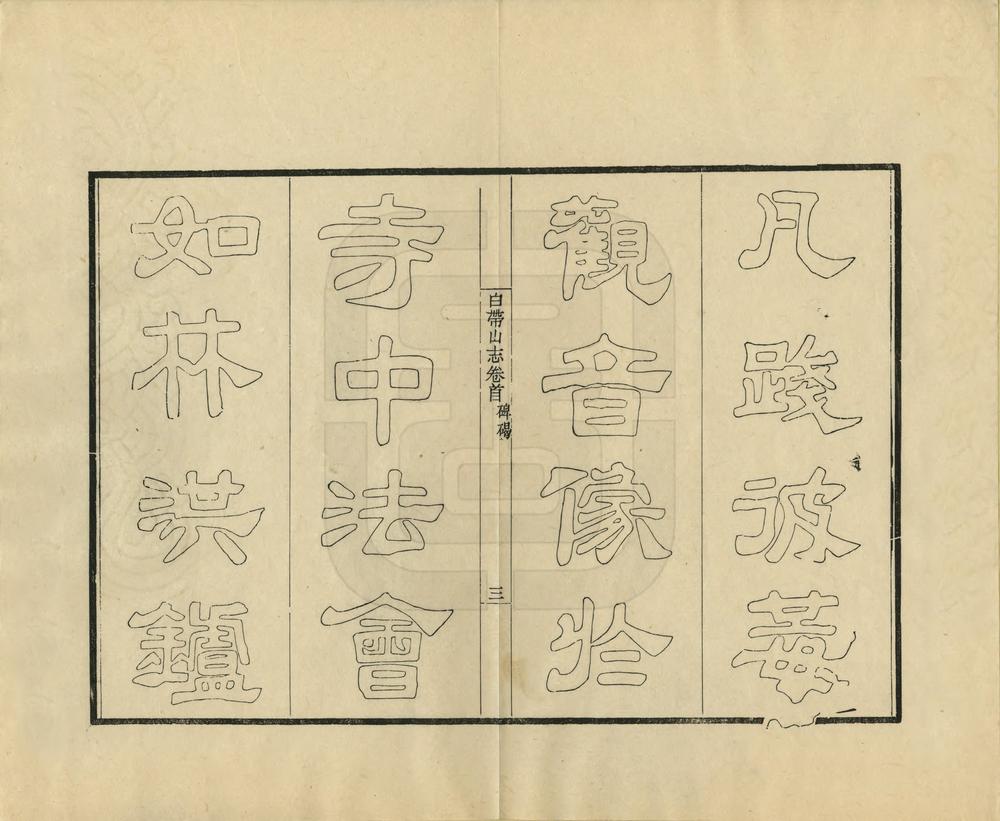 凡踐彼菴
觀音像於
白帶山志卷首 碑碣
三
寺中法會
如林洪鑪